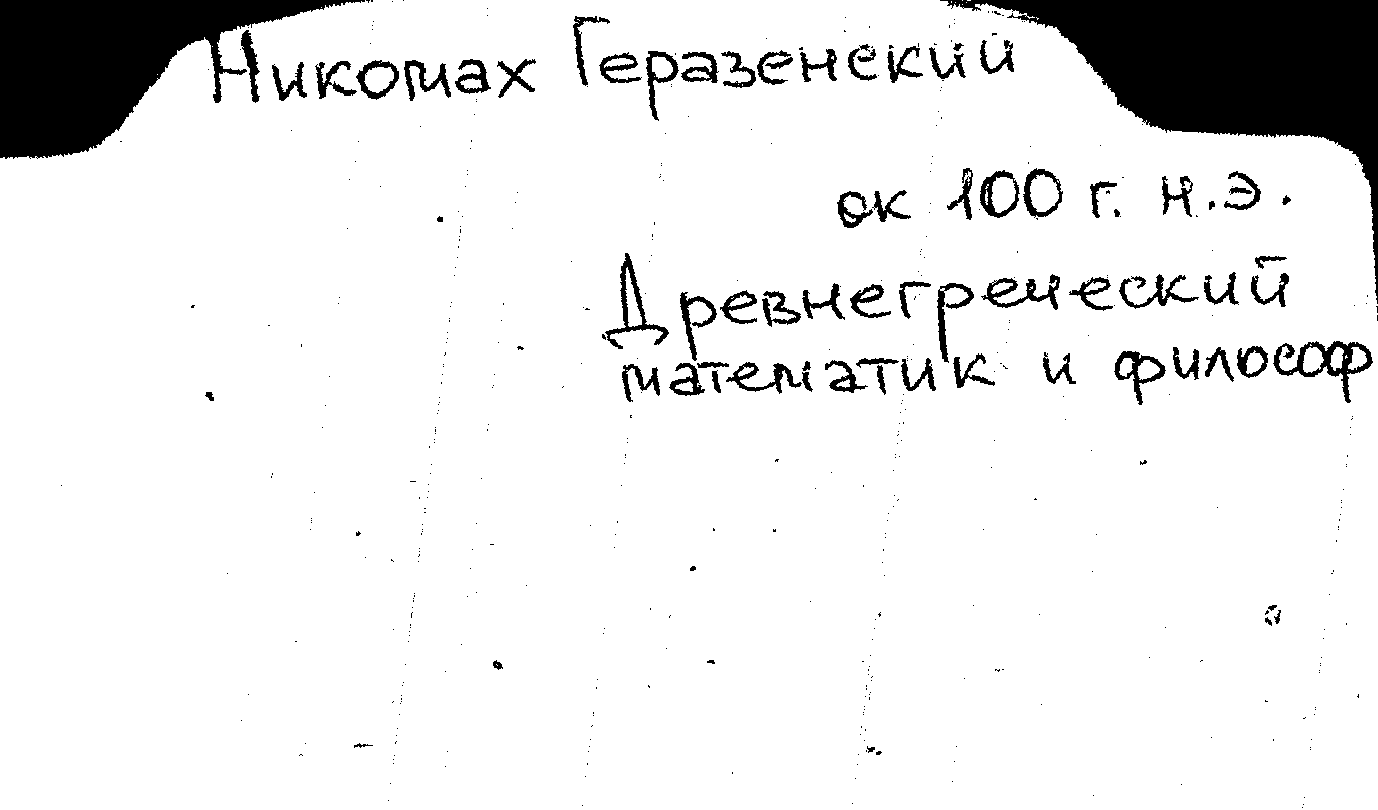 Никомах Геразенский
ок 100 г. н.э.
Древнегреческий
математик и философ